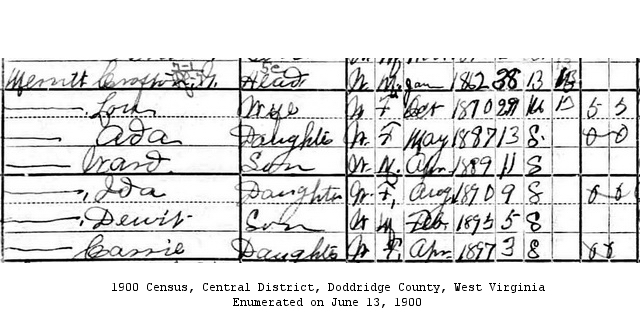 Merritt Head W M Jan 1862 38 13
Lou Wife W F Oct 1870 29 M 13 5 5
Ada Daughter W F May 1887 13 S 0 0
Ward Son W M Apr 1889 11 S
Ida Daughter W F Aug 1890 9 S 0 0
Dewit Son W M Feb 1895 5 S
Cassie Daughter W F Apr 1897 3 S 0 0
1900 Census, Central District, Doddridge County, West Virginia
Enumerated on June 13, 1900